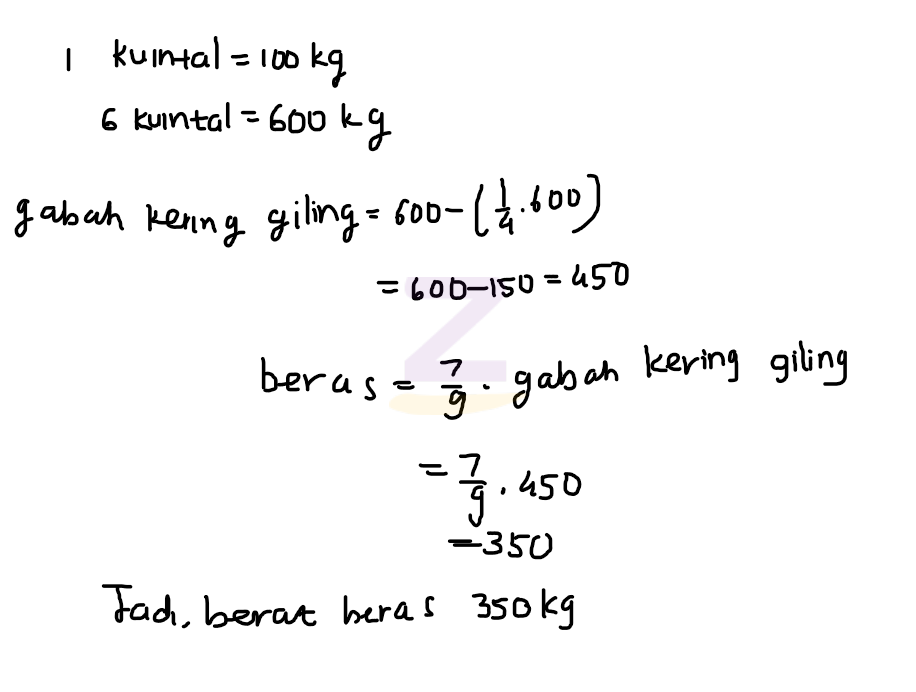 1 kuintal = 100 kg
6 kuintal = 600 kg
gabah kering giling = 600 - (1/4 . 600)
= 600 - 150 = 450
beras = 7/9 . gabah kering giling
= 7/9 . 450
= 350
Jadi, berat beras 350 kg